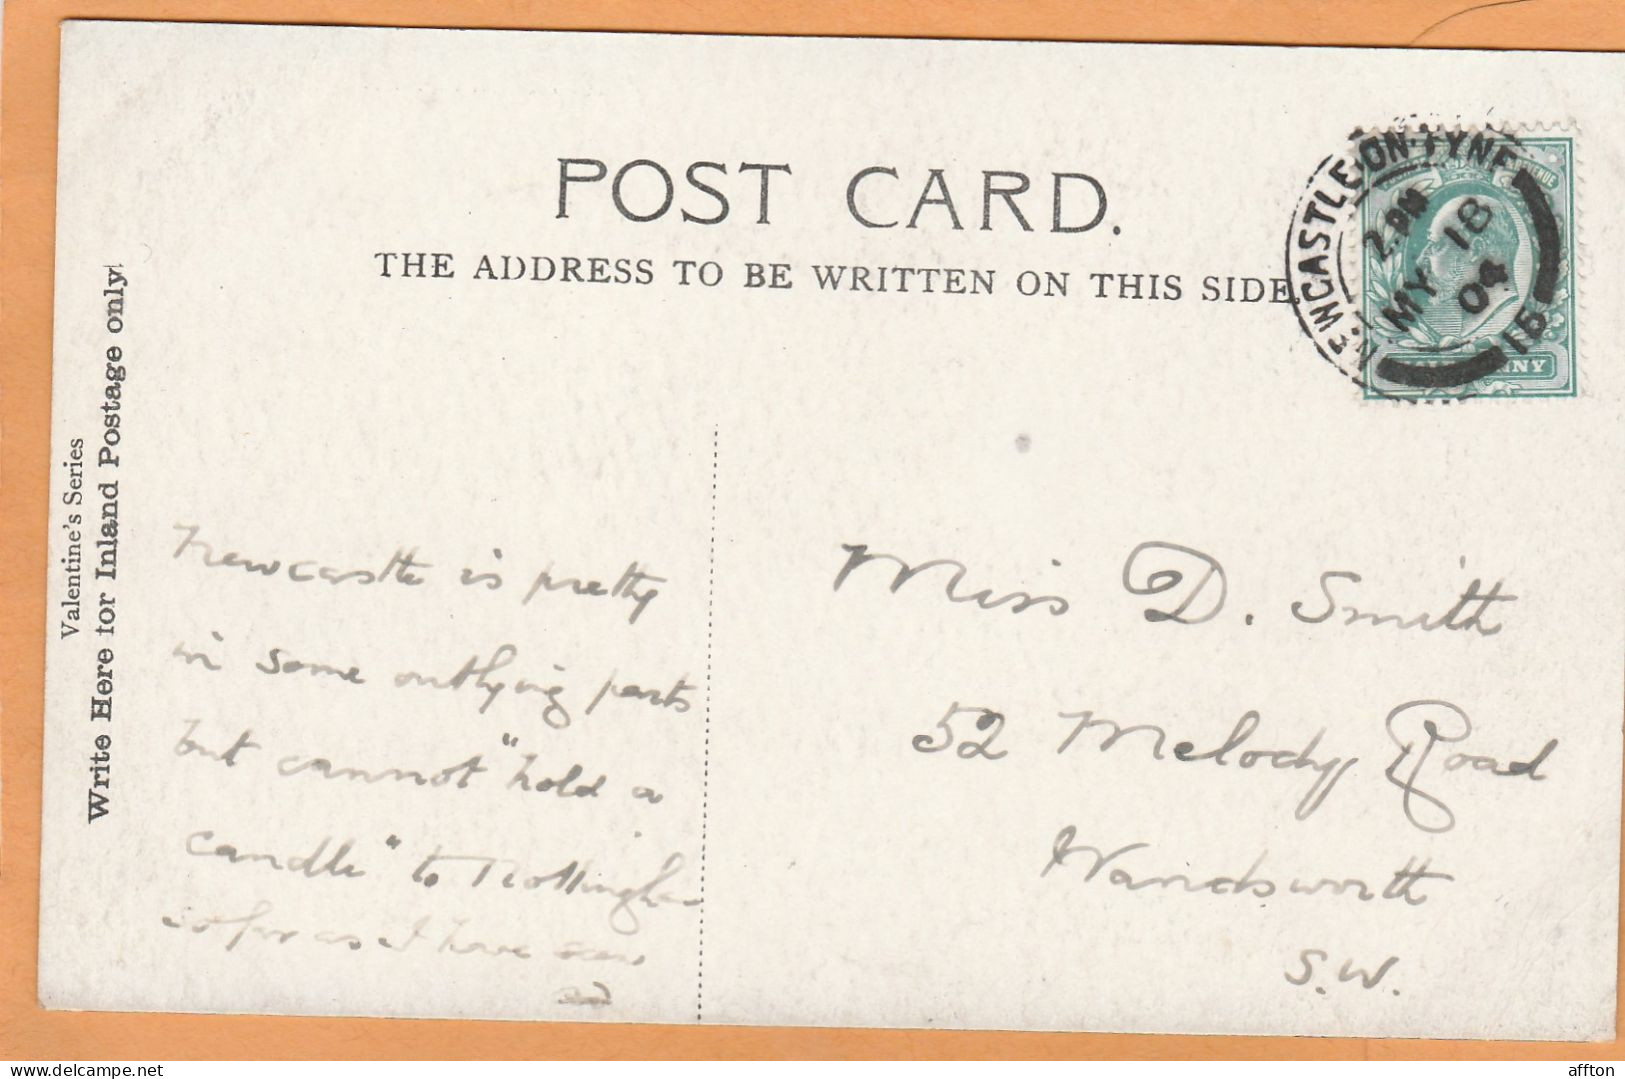 POST CARD.
THE ADDRESS TO BE WRITTEN ON THIS SIDE.
NEWCASTLE·ON·TYNE
2.PM
MY 18
04
116
Valentine's Series
Write Here for Inland Postage only.
Newcastle is pretty
in some outlying parts
but cannot "hold a
candle" to Nottingham
so far as I have seen
Miss D. Smith
52 Melody Road
Wandsworth
S.W.
affton